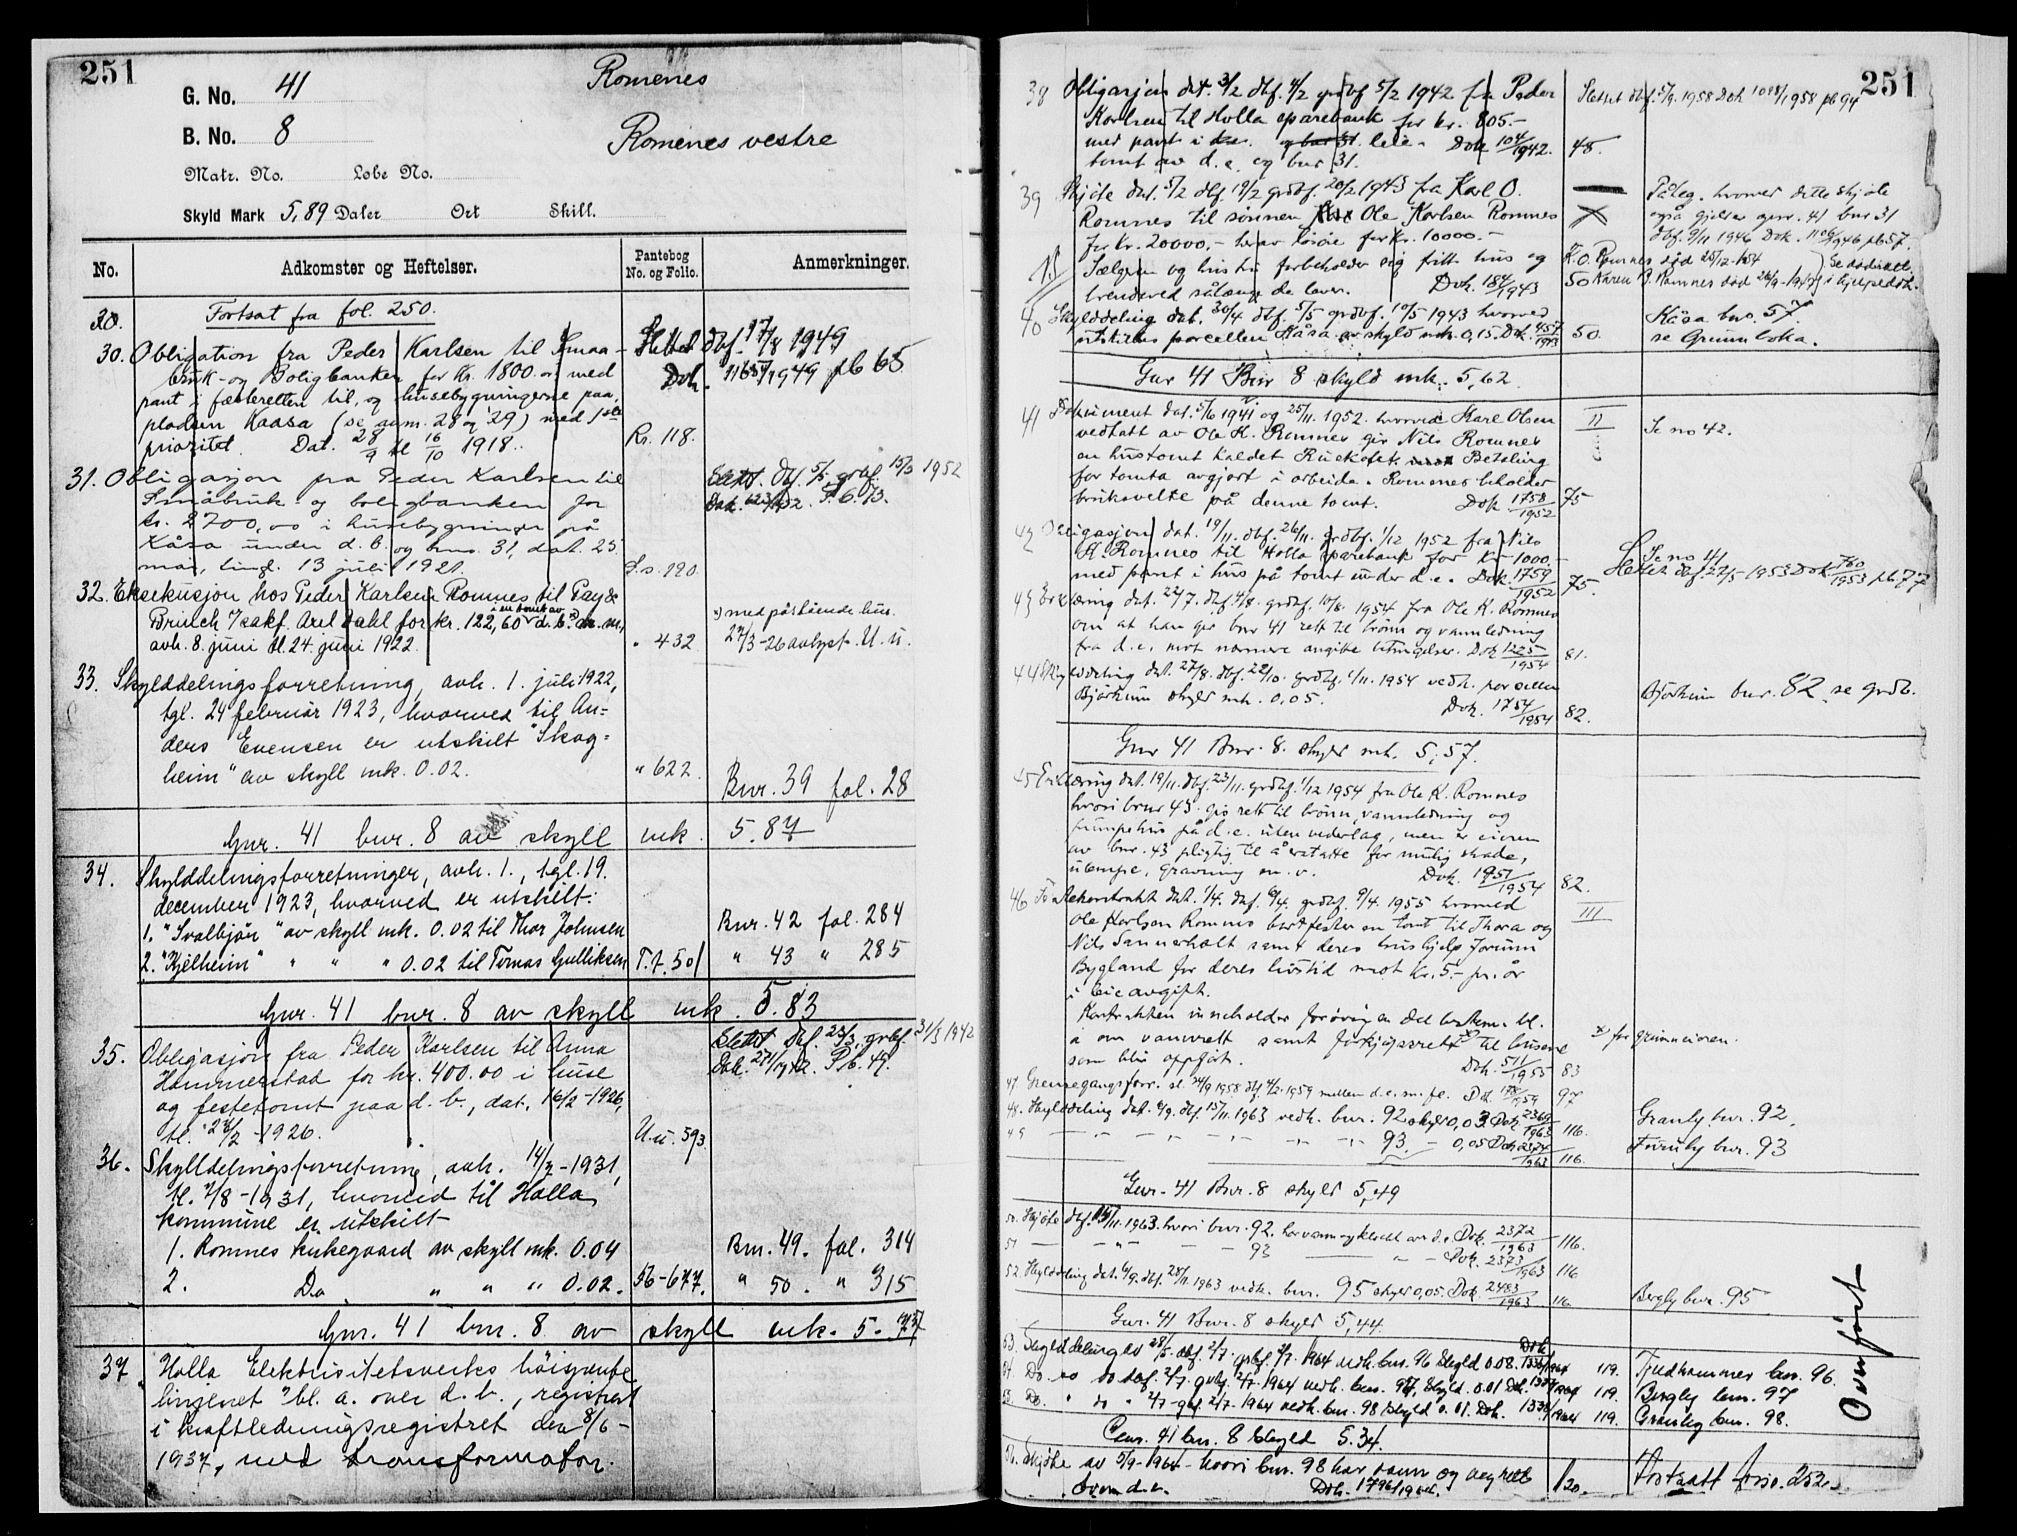 251
G. No. 41 Romenes
B. No. 8 Romenes vestre
Matr. No. Løbe No.
Skyld Mark 5,89 Daler Ort Skill.
No. Adkomster og Heftelser. Pantebog No. og Folio. Anmerkninger.
30. Fortsat fra fol. 250.
30. Obligation fra Peder Karlsen til Smaa- Slettet dbf. 17/8 1949
bruk- og Boligbanken for Kr. 1800.00 med Dok. 1949 pb 65
pant i festeretten til, og husebygningerne paa,
pladsen Kaasa (se num. 28 og 29) med 1ste
prioritet. Dat. 28/9 tl 16/10 1918. Rr. 118.
31. Obligasjon fra Peder Karlsen til Slettet. Dbf. 5/5 grbf. 15/5 1952
Småbruk- og boligbanken for Dok. 623/1952. P.b. 73.
kr. 2700,00 i husebygninger på
Kåsa under d.b. og bnr. 31, dat. 25
mai, tingl. 13 juli 1921. S.s. 190.
32. Eksekusjon hos Peder Karlsen Romnes til Pay &
Brinch v/sakf. Axel Dahl for kr. 122,60 i en tomt av d.b. m.m., x) med påstående hus.
avh. 8. juni tl. 24. juni 1922. " 432 27/3-26 avlyst. U. u.
33. Skylddelingsforretning, avh. 1. juli 1922,
tgl. 24 februar 1923, hvorved til An=
ders Evensen er utskilt "Skog=
heim" av skyll mk. 0.02. " 622. Bnr. 39 fol. 28
Gnr. 41 bnr. 8 av skyll mk. 5.87
34. Skylddelingsforretninger, avh. 1., tgl. 19.
december 1923, hvorved er utskilt:
1. "Svalbjør" av skyll mk. 0.02 til Thor Johnsen Bnr. 42 fol. 284
2. "Kjelheim" " " " 0.02 til Tomas Gulliksen T.t. 501 " 43 " 285
Gnr. 41 bnr. 8 av skyll mk. 5.83
35. Obligasjon fra Peder Karlsen til Anna Slettet Dbf. 25/3, grbf. 31/3 1942
Hammerstad for kr. 400.00 i huse Dok. 271/1942. P.b. 47.
og festetomt paa d.b., dat. 16/2-1926,
tl. 23/2-1926. U.u. 593.
36. Skylddelingsforretning, avh. 14/7-1931,
tl. 7/8-1931, hvorved til Holla
kommune er utskilt
1. Romnes kirkegaard av skyll mk. 0.04 Bnr. 49. fol. 314
2. Do " " " 0.02. 56-677. " 50. " 315
Gnr. 41 bnr. 8 av skyll mk. 5.77
37. Holla Elektrisitetsverks høispente
linjenet bl. a. over d.b., registrert
i kraftledningsregistret den 8/6-
1937, med transformator.
251
38 Obligasjon dat. 3/2 dbf. 4/2 grdbf 5/2 1942 fra Peder Slettet dbf. 5/9. 1958 Dok 1098/1958 pb 94
Karlsen til Holla sparebank for kr. 805.-
med pant i leie- Dok 104/1942. 48.
tomt av d.e. og bnr 31.
39 Skjøte dat. 5/2 dbf. 19/2 grdbf. 20/2 1943 fra Karl O. Påteg. hvorved dette skjøte
Romnes til sønnen Ole Karlsen Romnes også gjelder gnr. 41 bnr 31
for kr. 20000.- herav løsøre for kr. 10000.- dbf. 9/11 1946 Dok. 1106/1946 pb 57.
Sælgeren og hustru forbeholder sig fritt hus og K.O. Romnes død 25/12-1954
brendeved sålænge de lever. Dok. 184/1943 50 Karen Romnes død
40 Skylddeling dat. 30/4 dbf. 5/5 grdbf. 10/5 1943 hvorved Kåsa bnr. 57.
utskilles parcellen Kåsa av skyld mrk. 0,15. Dok. 457/1943 50. se Grunnboka.
Gnr 41 Bnr 8 skyld mk. 5,62.
41 Dokument dat. 5/6 1941 og 25/11. 1952. hvorved Karl Olsen II
vedtatt av Ole K. Romnes gir Nils Romnes Se no 42.
en hustomt kaldet Betaling
for tomta avgjort i arbeide. Romnes beholder
bruksrette på denne tomt. Dok 1758/1952 75
42 Obligasjon dat. 19/11. dbf. 26/11. grdbf. 1/12 1952 fra Nils
K. Romnes til Holla sparebank for kr 1000.- Se no 41
med pant i hus på tomt under d.e. Dok 1759/1952 75. Slettet dbf. 27/5 1953 Dok 760/1953 pb 77
43 Erklæring dat. 22/7. dbf 4/8. grdbf. 10/8. 1954 fra Ole K. Romnes
om at han gir bnr 41 rett til brønn og vannledning
fra d.e. mot nærmere angitte betingelser. Dok 1225/1954 81.
44 Skylddeling dat. 27/8. dbf. 22/10. grdbf. 1/11. 1954 vedk. parsellen
Bjørkum skyld mk. 0,05. Dok. 1754/1954 82. Bjørkum bnr. 82. se grdb.
Gnr 41 Bnr. 8. skyld mk. 5,57.
45 Erklæring dat. 19/11. dbf. 23/11. grdbf. 1/12 1954 fra Ole K. Romnes
hvori bnr 43 gis rett til brønn, vannledning og
pumpehus på d.e. uten vederlag, men er eieren
av bnr. 43 pligtig til å erstatte for mulig skade,
ulempe, gravning m.v. Dok. 1951/1954 82.
46 Festekontrakt dat. 1/4. dbf. 6/4. grdbf. 9/4. 1955 hvorved III
Ole Karlsen Romnes bortfester en tomt til Thora og
Nils Sannerholt samt deres hushjelp Jorunn
Bygland for deres livstid mot kr. 5.- pr. år
i leieavgift.
Kontrakten inneholder forøvrig en del bestem. bl.
a om vannrett samt forkjøpsrett x) til husene x) for grunneieren.
som blir oppført. Dok. 511/1955 83
47. Grensegangsforr. sl. 24/9 1958 dbf 4/2. 1959 mellem d.e. m.fl. Dok 178/1959 97
48. Skylddeling dat. 6/9. dbf. 15/11. 1963 vedk. bnr. 92 skyld 0,03 Dok 2369/1963 116. Granly bnr. 92.
49 93. - 0,05 Dok 2374/1963 116. Furuly bnr. 93
Gnr. 41 Bnr. 8 skyld 5,49
50. Skjøte dbf. 15/11. 1963. hvori bnr. 92. har vann og kloakk over d.e. Dok. 2372/1963 116.
51 93 Dok. 2373/1963 116
52. Skylddeling dat. 6/9. dbf. 28/11. 1963 vedk. bnr. 95 skyld 0,05. Dok. 2483/1963 116. Bergly bnr. 95
Gnr. 41 Bnr. 8 skyld 5,44.
53. Skylddeling av 28/5. dbf. 2/7. grbf. 2/7. 1964 vedk. bnr. 96 skyld 0.08. Dok 1964 119. Tjudhammer bnr. 96.
54. Do. av do dbf. 2/7. grbf. 2/7. 1964 vedk. bnr. 97, skyld. 0.01 Dok. 1964 119. Bergly bnr. 97
55. Do. " do " 2/7- gbf. 2/7. 1964 vedk. bnr. 98 skyld 0.01. Dok. 1964 119. Granly bnr. 98.
Gnr. 41 bnr. 8 skyld 5.34.
56. Skjøte av 5/9-1964 - hvori bnr. 98 har vann og vegrett 120. Fortsatt fol. 252.
over d.e. Dok. 1796/1964.
Overført